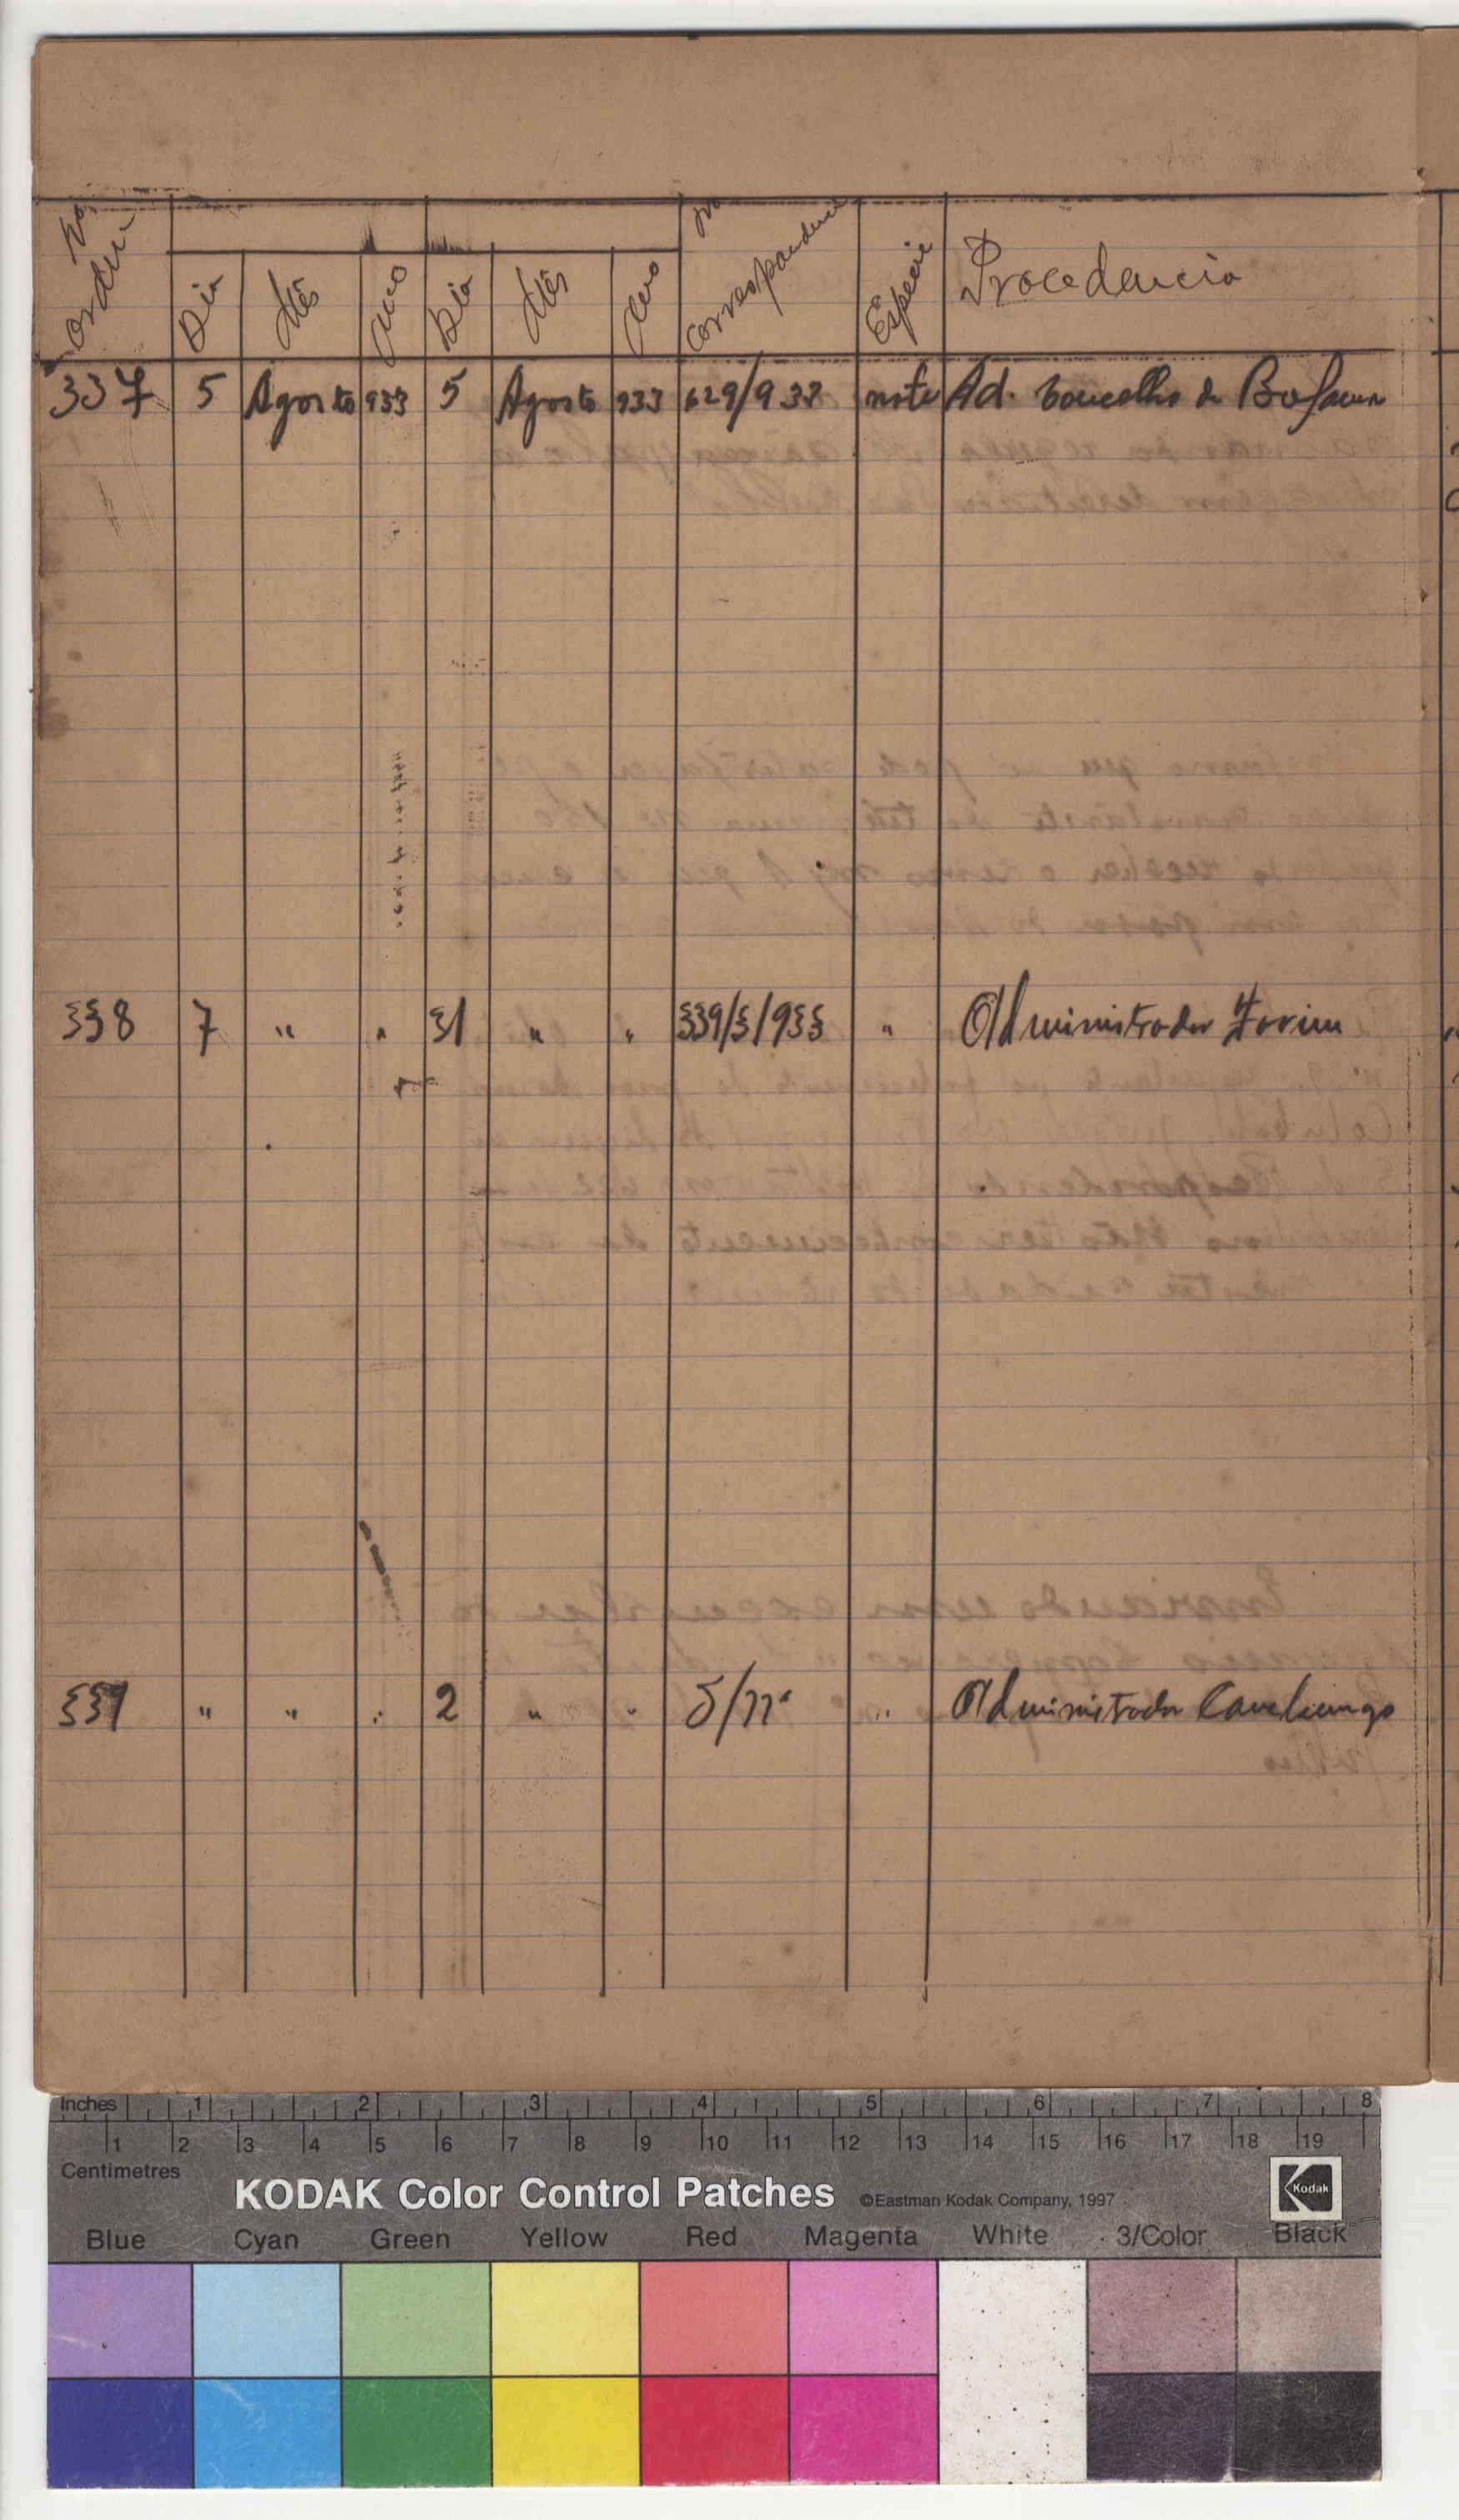 No ordem Dia Mês Ano Dia Mês Ano No correspondencia Especie Procedencia
337 5 Agosto 933 5 Agosto 933 629/933 nota Ad. Concelho de
338 7 " " 31 " " 339/3/933 " Administrador Farim
339 " " " 2 " " S/nº " Administrador Canchungo
Inches 1 2 3 4 5 6 7 8
1 2 3 4 5 6 7 8 9 10 11 12 13 14 15 16 17 18 19
Centimetres
KODAK Color Control Patches ©Eastman Kodak Company, 1997 Kodak
Blue Cyan Green Yellow Red Magenta White 3/Color Black